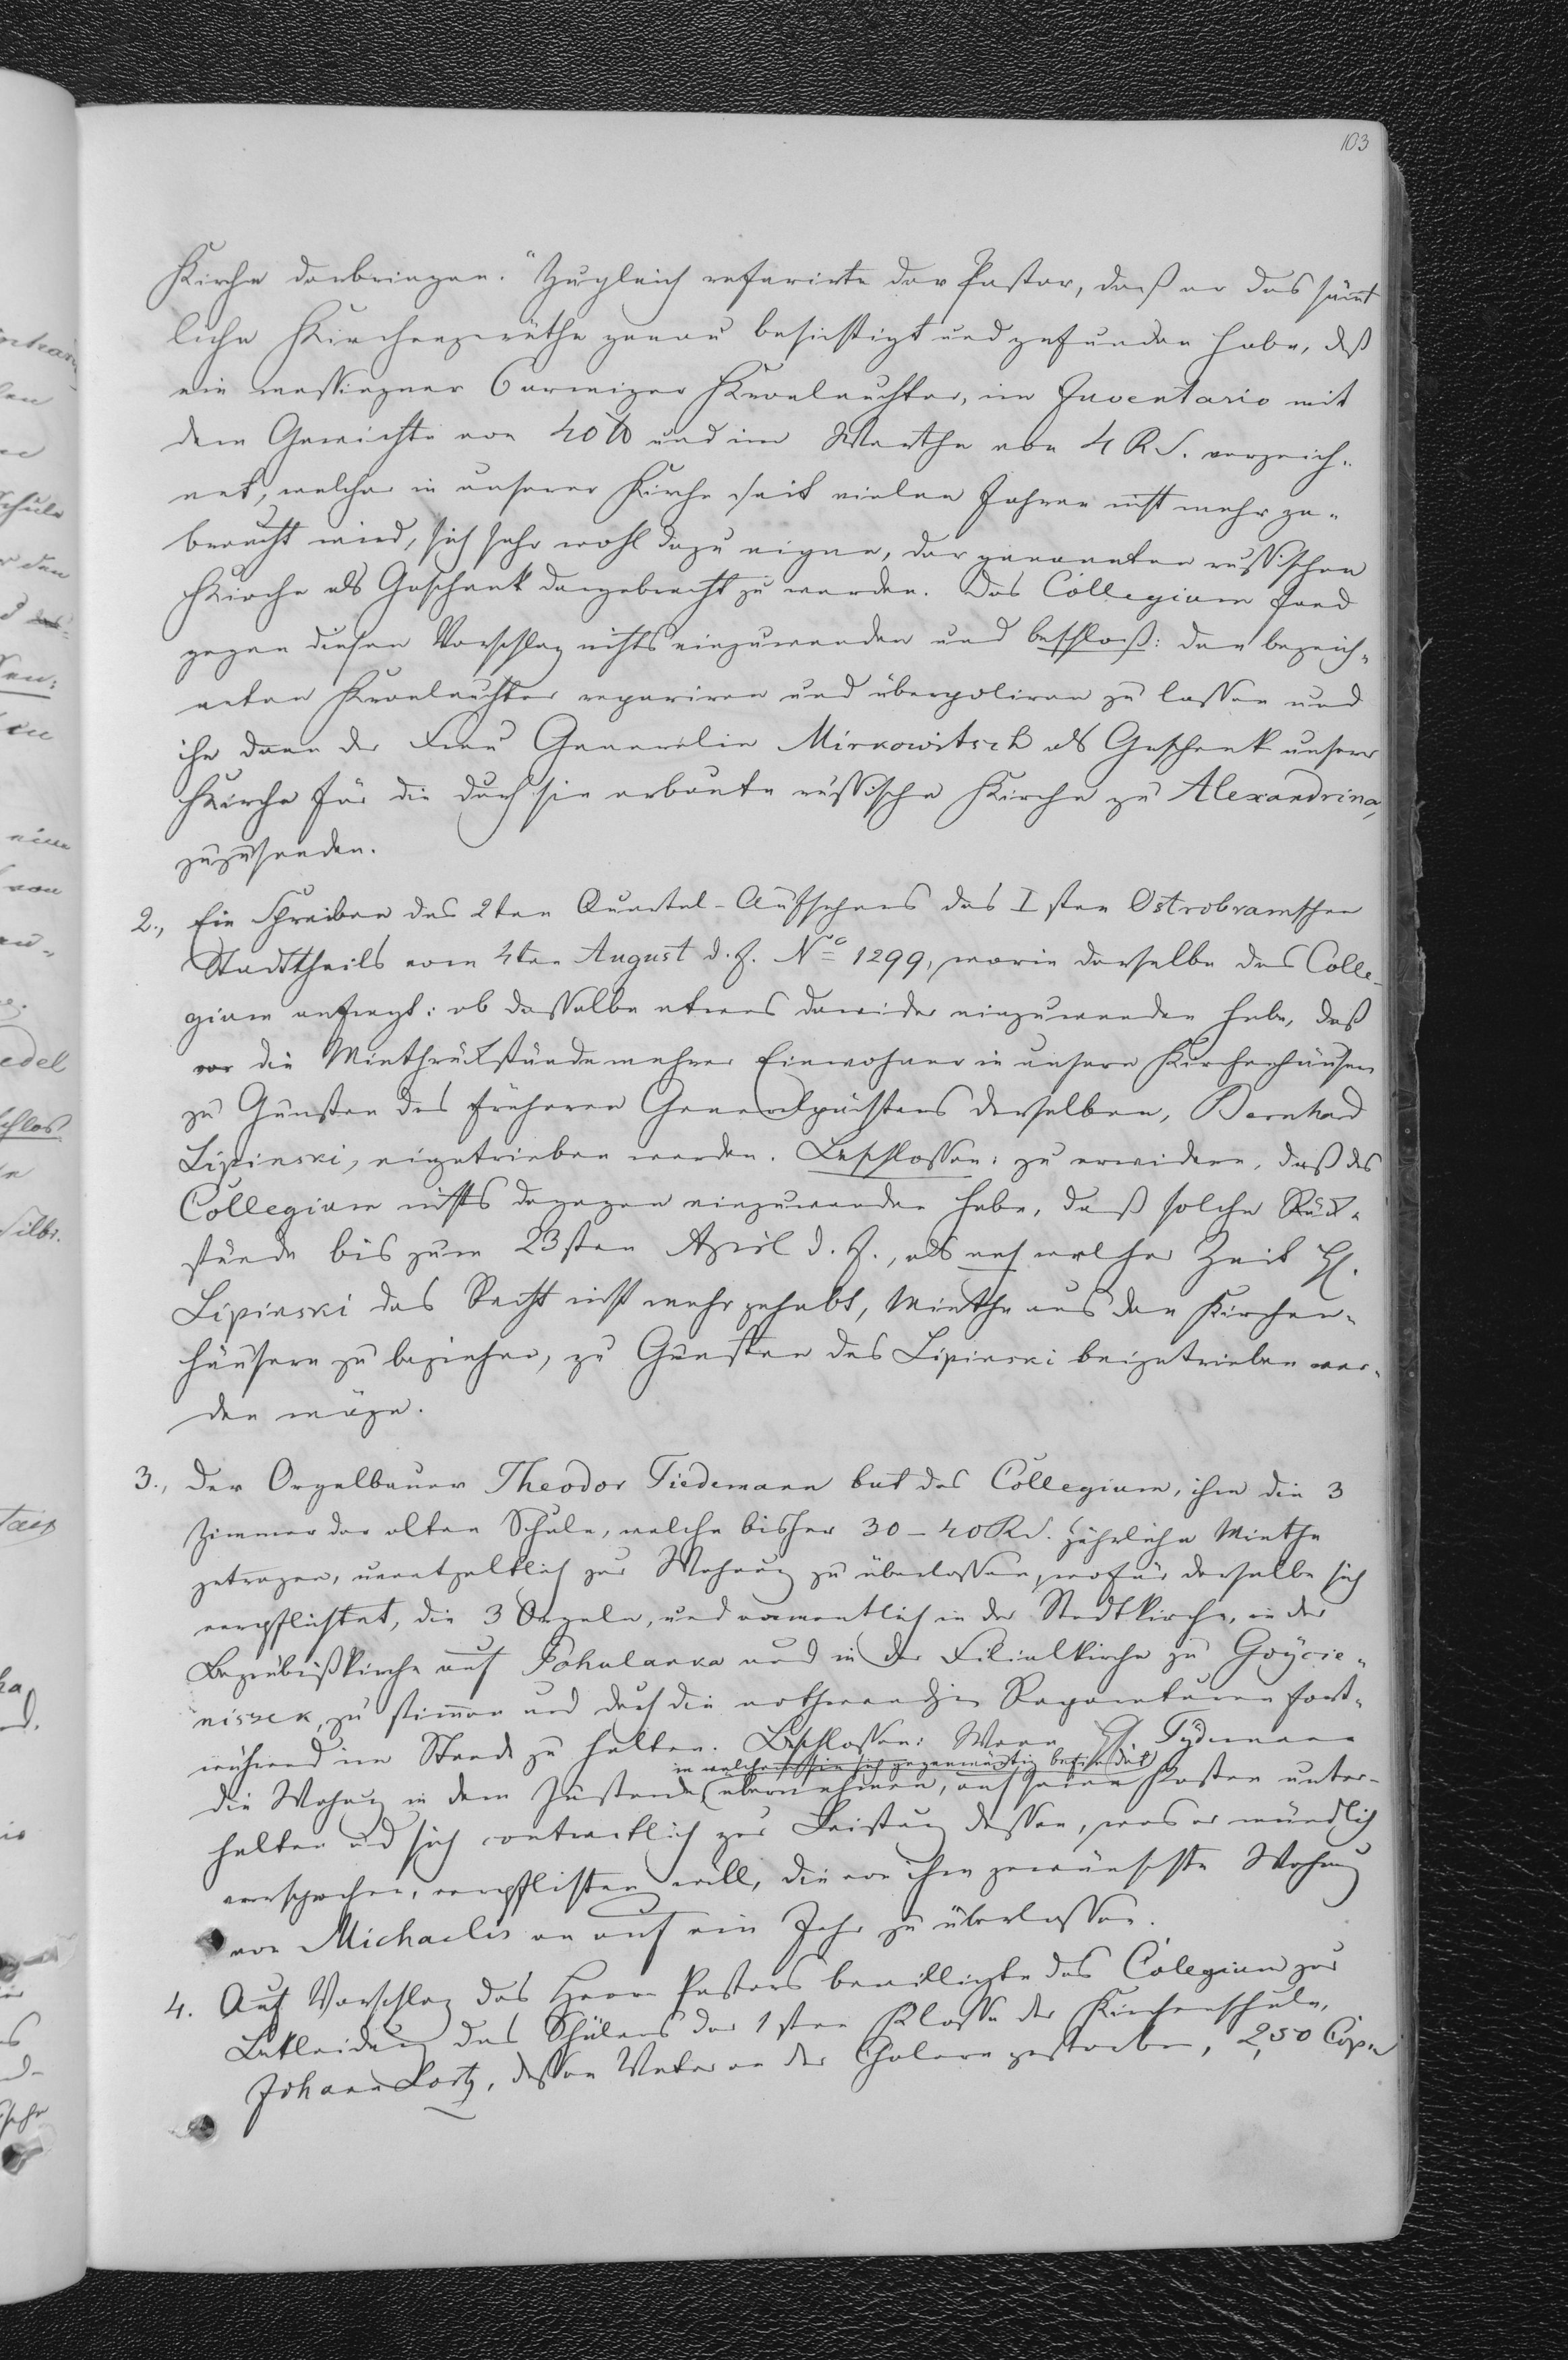 103
Kirche darbringen." Zugleich referirte der Pastor, daß er das sämt
liche Kirchengeräthe genau besichtigt und gefunden habe, daß
ein messingner 6 armiger Kronleuchter, im Inventario mit
dem Gewichte von 40 ℔ und im Werthe von 4 R S. verzeich-
net, welcher in unserer Kirche seit vielen Jahren nicht mehr ge-
braucht wird, sich sehr wohl dazu eigne, der genannten russischen
Kirche als Geschenk dargebracht zu werden. Das Collegium fand
gegen diesen Vorschlag nichts einzuwenden und beschloß: den bezeich-
neten Kronleuchter repariren und überpoliren zu lassen und
ihn dann der Frau Generalin Mirkowitsch als Geschenk unserer
Kirche für die durch sie erbaute russische Kirche zu Alexandrina,
zuzusenden.
2., Ein Schreiben des 2ten Quartal-Aufsehers des I sten Ostrobramschen
Stadttheils vom 4ten August d. J. No 1299, worin derselbe das Colle-
gium anfragt: ob dasselbe etwas dawider einzuwenden habe, daß
die Miethrückstände mehrer Einwohner in unsern Kirchenhäusern
zu Gunsten des früheren Generalpächters derselben, Bernhard
Lipinski, eingetrieben werden. Beschlossen: zu erwidern, daß das
Collegium nichts dagegen einzuwenden habe, daß solche Rück-
stände bis zum 23sten April d. J., als nach welcher Zeit H.
Lipinski das Recht nicht mehr gehabt, Miethe aus den Kirchen-
häusern zu beziehen, zu Gunsten des Lipinski beigetrieben wer-
den möge.
3., Der Orgelbauer Theodor Tiedemann bat das Collegium, ihm die 3
Zimmer der alten Schule, welche bisher 30 - 40 R S. jährliche Miethe
getragen, unentgeltlich zur Wohnung zu überlassen, wofür derselbe sich
verpflichtet, die 3 Orgeln, und namentlich in der Stadtkirche, in der
Begräbnißkirche auf Pohulanka und in der Filialkirche zu Goycie-
niszek, zu stimmen und durch die nothwendigen Reparaturen fort-
während im Stande zu halten. Beschlossen: Wenn H. Tydemann
in welchem sie sich gegenwärtig befindet
die Wohnung in dem Zustande übernehmen, auf seine Kosten unter-
halten und sich contractlich zur Leistung dessen, was er mündlich
versprochen, verpflichten will, die von ihm gewünschte Wohnung
von Michaelis an auf ein Jahr zu überlassen.
4. Auf Vorschlag des Herrn Pastors bewilligte das Colegium zur
Bekleidung des Schülers der 1 sten Klasse der Kirchenschule,
Johann Lortz, dessen Vater an der Cholera gestorben, 2,50 Cop.